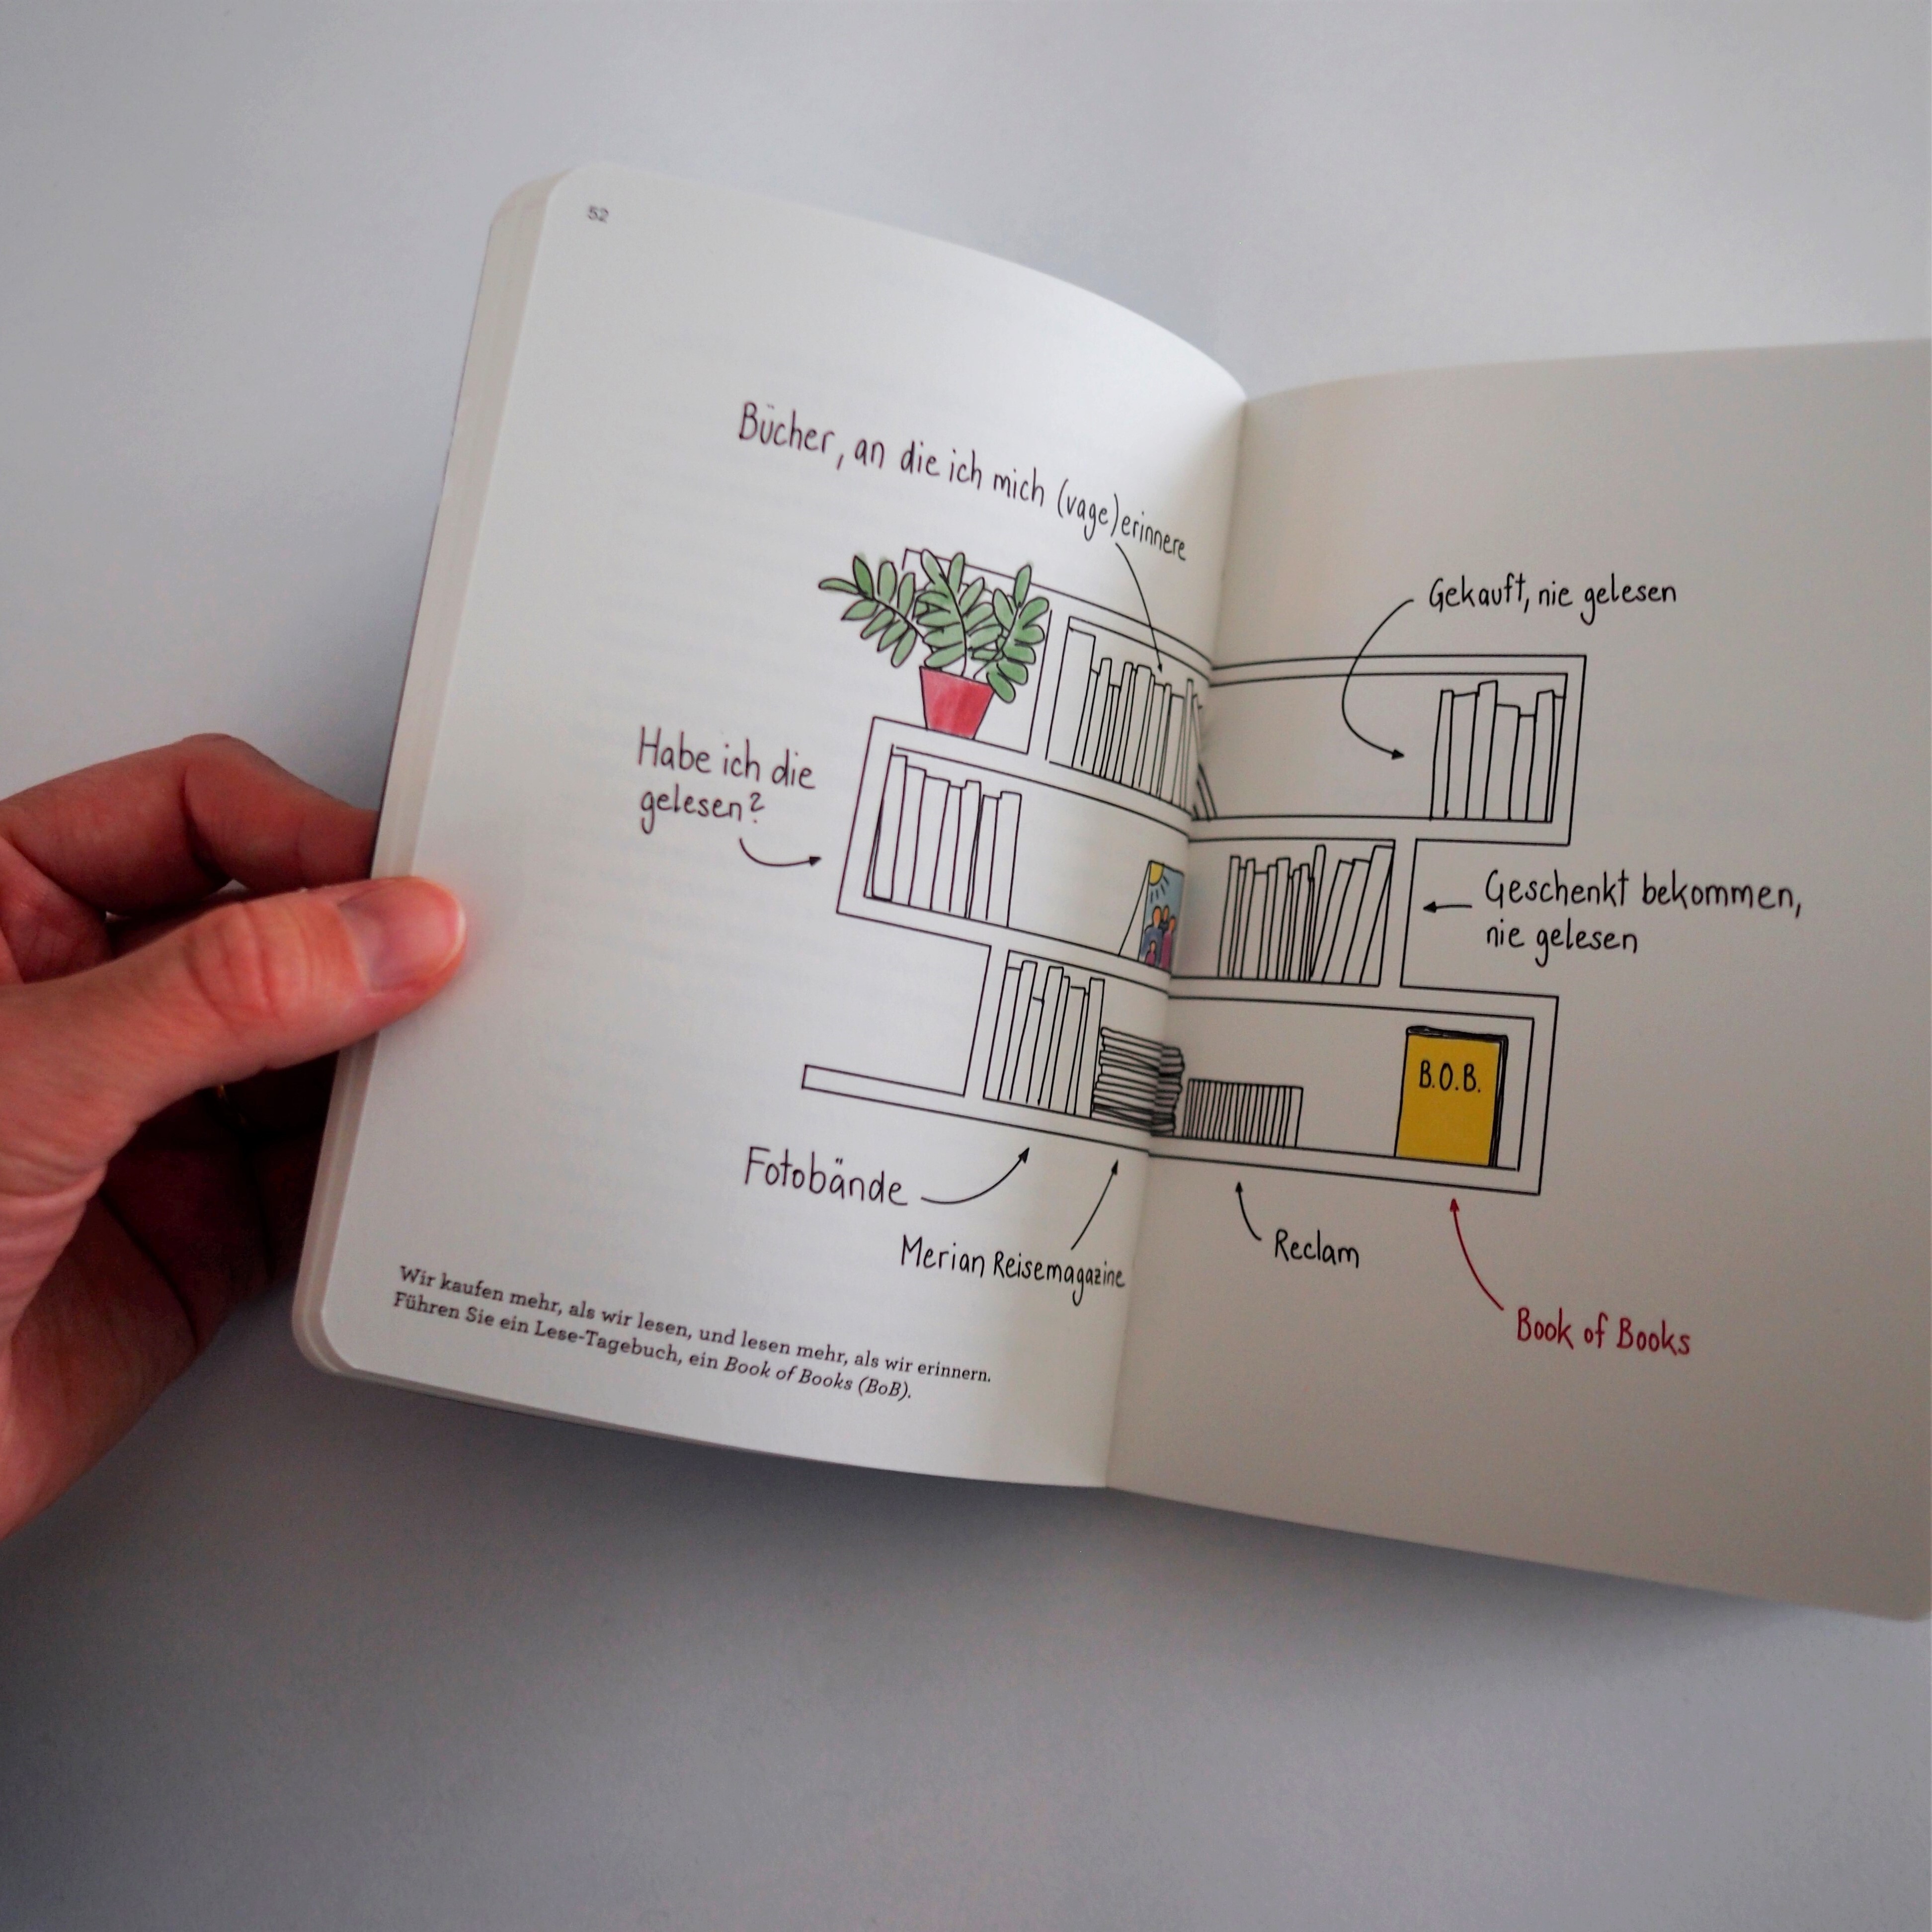 52
Bücher, an die ich mich (vage) erinnere
Gekauft, nie gelesen
Habe ich die
gelesen?
Geschenkt bekommen,
nie gelesen
B.O.B.
Fotobände
Merian Reisemagazine
Reclam
Book of Books
Wir kaufen mehr, als wir lesen, und lesen mehr, als wir erinnern.
Führen Sie ein Lese-Tagebuch, ein Book of Books (BoB).